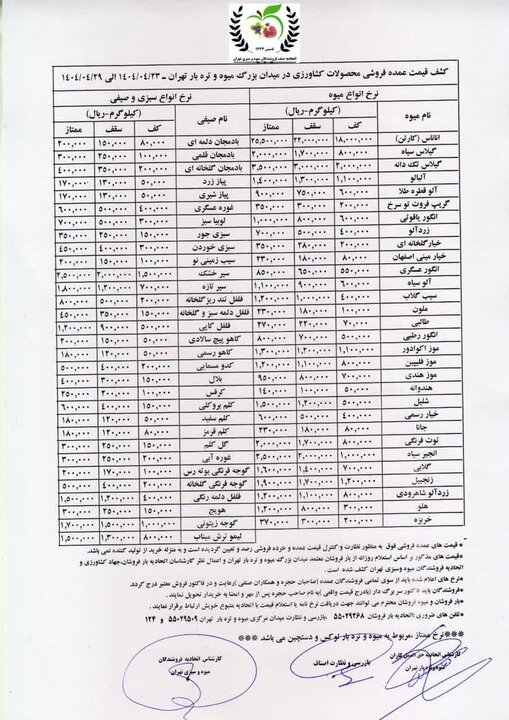 تاسیس ۱۳۴۳
اتحادیه صنف فروشندگان میوه و سبزی تهران
کشف قیمت عمده فروشی محصولات کشاورزی در میدان بزرگ میوه و تره بار تهران ـ ۱۴۰۴/۰۴/۲۳ الی ۱۴۰۴/۰۴/۲۹
نرخ انواع میوه نرخ انواع سبزی و صیفی
نام میوه (کیلوگرم-ریال) نام صیفی (کیلوگرم-ریال)
کف سقف ممتاز کف سقف ممتاز
آناناس (کارتن) ۱۸,۰۰۰,۰۰۰ ۲۲,۰۰۰,۰۰۰ ۲۵,۵۰۰,۰۰۰ بادمجان دلمه ای ۸۰,۰۰۰ ۱۵۰,۰۰۰ ۲۰۰,۰۰۰
گیلاس سیاه ۸۰۰,۰۰۰ ۱,۷۰۰,۰۰۰ ۲,۰۰۰,۰۰۰ بادمجان قلمی ۱۰۰,۰۰۰ ۲۵۰,۰۰۰ ۳۰۰,۰۰۰
گیلاس تک دانه ۲,۰۰۰,۰۰۰ ۳,۰۰۰,۰۰۰ ۳,۵۰۰,۰۰۰ بادمجان گلخانه ای ۲۰۰,۰۰۰ ۳۵۰,۰۰۰ ۴۰۰,۰۰۰
آلبالو ۱,۱۰۰,۰۰۰ ۱,۳۰۰,۰۰۰ ۱,۴۰۰,۰۰۰ پیاز زرد ۵۰,۰۰۰ ۱۳۰,۰۰۰ ۱۷۰,۰۰۰
آلو قطره طلا ۶۰۰,۰۰۰ ۷۵۰,۰۰۰ ۹۰۰,۰۰۰ پیاز شیری ۵۰,۰۰۰ ۱۳۰,۰۰۰ ۱۷۰,۰۰۰
گریپ فروت تو سرخ ۲۰۰,۰۰۰ ۳۰۰,۰۰۰ ۳۵۰,۰۰۰ غوره عسگری ۴۰۰,۰۰۰ ۵۰۰,۰۰۰ ۶۰۰,۰۰۰
انگور یاقوتی ۶۰۰,۰۰۰ ۸۰۰,۰۰۰ ۱,۰۰۰,۰۰۰ لوبیا سبز ۳۰۰,۰۰۰ ۵۰۰,۰۰۰ ۷۰۰,۰۰۰
زردآلو ۴۰۰,۰۰۰ ۵۰۰,۰۰۰ ۷۰۰,۰۰۰ سبزی جور ۱۵۰,۰۰۰ ۲۵۰,۰۰۰ ۳۵۰,۰۰۰
خیارگلخانه ای ۲۰۰,۰۰۰ ۲۸۰,۰۰۰ ۳۵۰,۰۰۰ سبزی خوردن ۳۰۰,۰۰۰ ۴۰۰,۰۰۰ ۴۵۰,۰۰۰
خیار مینی اصفهان ۸۰,۰۰۰ ۱۸۰,۰۰۰ ۲۳۰,۰۰۰ سیب زمینی نو ۱۰۰,۰۰۰ ۱۵۰,۰۰۰ ۲۰۰,۰۰۰
انگور عسگری ۵۵۰,۰۰۰ ۶۵۰,۰۰۰ ۸۵۰,۰۰۰ سیر خشک ۱,۵۰۰,۰۰۰ ۲,۰۰۰,۰۰۰ ۲,۵۰۰,۰۰۰
آلو سیاه ۶۰۰,۰۰۰ ۹۰۰,۰۰۰ ۱,۱۰۰,۰۰۰ سیر تازه ۷۰۰,۰۰۰ ۱,۲۰۰,۰۰۰ ۱,۸۰۰,۰۰۰
سیب گلاب ۴۰۰,۰۰۰ ۱,۰۰۰,۰۰۰ ۱,۲۰۰,۰۰۰ فلفل تند ریزگلخانه ۲۰۰,۰۰۰ ۵۰۰,۰۰۰ ۸۰۰,۰۰۰
ملون ۱۰۰,۰۰۰ ۱۸۰,۰۰۰ ۲۳۰,۰۰۰ فلفل دلمه سبز و گلخانه ۱۵۰,۰۰۰ ۳۵۰,۰۰۰ ۴۵۰,۰۰۰
طالبی ۷۰,۰۰۰ ۲۲۰,۰۰۰ ۲۷۰,۰۰۰ فلفل کاپی ۵۰۰,۰۰۰ ۹۰۰,۰۰۰ ۱,۲۰۰,۰۰۰
انگور رطبی ۵۰۰,۰۰۰ ۷۰۰,۰۰۰ ۸۰۰,۰۰۰ کاهو پیچ سالادی ۵۰,۰۰۰ ۱۵۰,۰۰۰ ۲۰۰,۰۰۰
موز اکوادور ۱,۱۰۰,۰۰۰ ۱,۲۰۰,۰۰۰ ۱,۳۰۰,۰۰۰ کاهو رسمی ۵۰,۰۰۰ ۱۲۰,۰۰۰ ۱۸۰,۰۰۰
موز فلیپین ۸۰۰,۰۰۰ ۱,۱۰۰,۰۰۰ ۱,۲۰۰,۰۰۰ کدو مسمایی ۲۰۰,۰۰۰ ۴۰۰,۰۰۰ ۵۰۰,۰۰۰
موز هندی ۷۰۰,۰۰۰ ۸۰۰,۰۰۰ ۹۵۰,۰۰۰ بلال ۱۵۰,۰۰۰ ۳۰۰,۰۰۰ ۴۰۰,۰۰۰
هندوانه ۵۰,۰۰۰ ۱۰۰,۰۰۰ ۱۴۰,۰۰۰ کرفس ۱۰۰,۰۰۰ ۲۵۰,۰۰۰ ۳۰۰,۰۰۰
شلیل ۵۰۰,۰۰۰ ۱,۲۰۰,۰۰۰ ۱,۵۰۰,۰۰۰ کلم بروکلی ۱۵۰,۰۰۰ ۴۰۰,۰۰۰ ۶۰۰,۰۰۰
خیار رسمی ۴۰۰,۰۰۰ ۵۰۰,۰۰۰ ۶۰۰,۰۰۰ کلم سفید ۵۰,۰۰۰ ۱۲۰,۰۰۰ ۱۸۰,۰۰۰
جانا ۸۰,۰۰۰ ۱۸۰,۰۰۰ ۲۳۰,۰۰۰ کلم قرمز ۸۰,۰۰۰ ۱۲۰,۰۰۰ ۱۸۰,۰۰۰
توت فرنگی ۸۰۰,۰۰۰ ۱,۷۰۰,۰۰۰ ۲,۰۰۰,۰۰۰ گل کلم ۱۵۰,۰۰۰ ۲۵۰,۰۰۰ ۳۰۰,۰۰۰
انجیر سیاه ۱,۰۰۰,۰۰۰ ۲,۰۰۰,۰۰۰ ۲,۵۰۰,۰۰۰ غوره آبی ۲۰۰,۰۰۰ ۲۵۰,۰۰۰ ۳۰۰,۰۰۰
گلابی ۷۰۰,۰۰۰ ۱,۴۰۰,۰۰۰ ۱,۶۰۰,۰۰۰ گوجه فرنگی بوته رس ۱۰۰,۰۰۰ ۱۷۰,۰۰۰ ۲۰۰,۰۰۰
زنجبیل ۱,۲۰۰,۰۰۰ ۱,۷۰۰,۰۰۰ ۱,۹۰۰,۰۰۰ گوجه فرنگی گلخانه ۲۰۰,۰۰۰ ۴۰۰,۰۰۰ ۵۰۰,۰۰۰
زردآلو شاهرودی ۸۰۰,۰۰۰ ۱,۱۰۰,۰۰۰ ۱,۲۰۰,۰۰۰ فلفل دلمه رنگی ۴۰۰,۰۰۰ ۱,۲۰۰,۰۰۰ ۱,۵۰۰,۰۰۰
هلو ۳۰۰,۰۰۰ ۸۰۰,۰۰۰ ۱,۲۰۰,۰۰۰ هویج ۱۵۰,۰۰۰ ۲۵۰,۰۰۰ ۳۰۰,۰۰۰
خربزه ۲۰۰,۰۰۰ ۳۰۰,۰۰۰ ۳۷۰,۰۰۰ گوجه زیتونی ۱,۰۰۰,۰۰۰ ۱,۵۰۰,۰۰۰ ۱,۷۰۰,۰۰۰
لیمو ترش میناب ۸۰۰,۰۰۰ ۱,۳۰۰,۰۰۰ ۱,۵۰۰,۰۰۰
* قیمت های عمده فروشی فوق به منظور نظارت و کنترل قیمت عمده و خرده فروشی رصد و تعیین گردیده است و به منزله خرید از تولید کننده نمی باشد.
*قیمت های مذکور بر اساس استعلام روزانه از بار فروشان معتمد میدان بزرگ میوه و تره بار تهران و اعمال نظر کارشناسان بارفروشان،جهاد کشاورزی و اتحادیه فروشندگان میوه وسبزی تهران کشف شده است.
*نرخ های اعلام شده باید از سوی تمامی فروشندگان عمده (صاحبان حجره و همکاران صنفی )رعایت و در فاکتور فروش معتبر درج گردد.
*فروشندگان باید فاکتور سر برگ دار (بادرج قیمت واقعی )به نام صاحب حجره پس از مهر و امضا به خریدار تحویل نمایند.
*بار فروشان و میوه فروشان محترم می توانند جهت دریافت نرخ نامه یا استعلام قیمت با اتحادیه متبوع خویش ارتباط برقرار نمایند.
*تلفن های ضروری :اتحادیه بار فروشان ۵۵۰۲۹۲۶۸ ،بازرسی و نظارت میدان مرکزی میوه و تره بار تهران ۵۵۰۲۹۵۰۹ و ۱۲۴
***نرخ ممتاز ،مربوط به میوه و تره بار لوکس و دستچین می باشد ***
کارشناس اتحادیه حق العمل کاران
میوه و تره بار تهران
بازرسی و نظارت اصناف
کارشناس اتحادیه فروشندگان
میوه و سبزی تهران